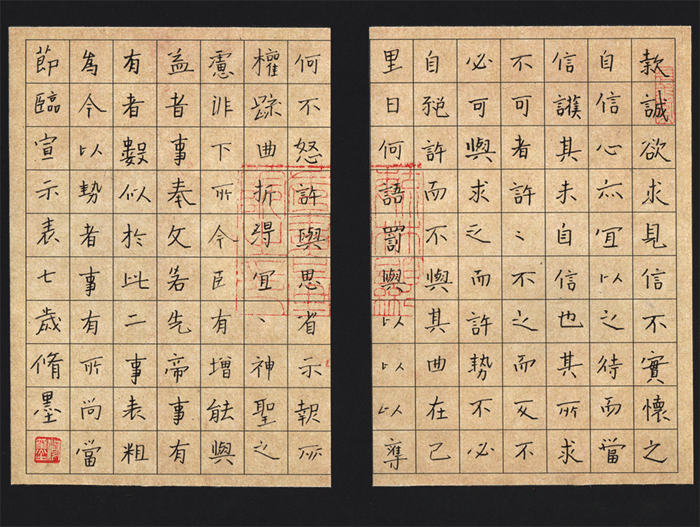 款誠欲求見信不實懷之
自信心亦宜以之待而當
信護其未自信也其所求
不可者許〻不之而反不
必可與求之而許勢不必
自絕許而不與其曲在己
里曰何語罰與以以以奪
何不怒許與思省示報所
權踈曲折得宜〻神聖之
慮非下所令臣有增能與
益者事奉文若先帝事有
有者數似於此二事表粗
為今以勢者事有所尚當
節臨宣示表七歲脩墨